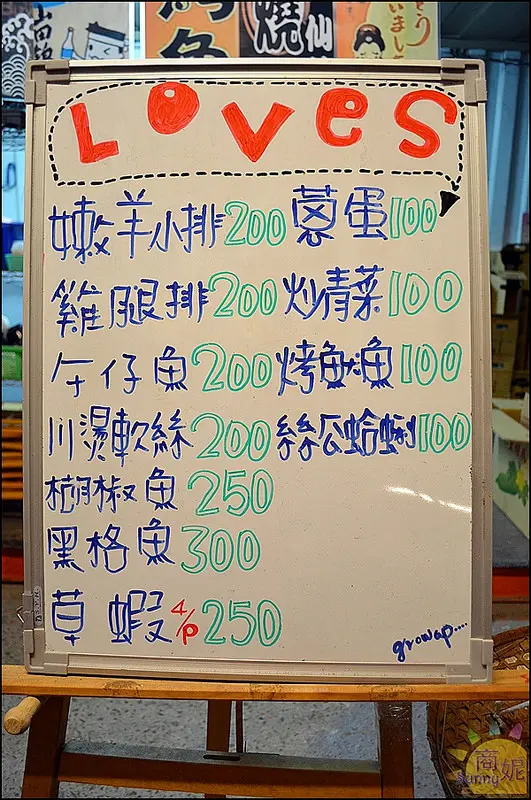 燒
仙
いました
LOVES
嫩羊小排200 蔥蛋100
雞腿排200 炒青菜100
午仔魚200 烤魷魚100
川燙軟絲200 絲瓜蛤蜊100
胡椒魚250
黑格魚300
草蝦4/P250
growap....
商妮
Sunny